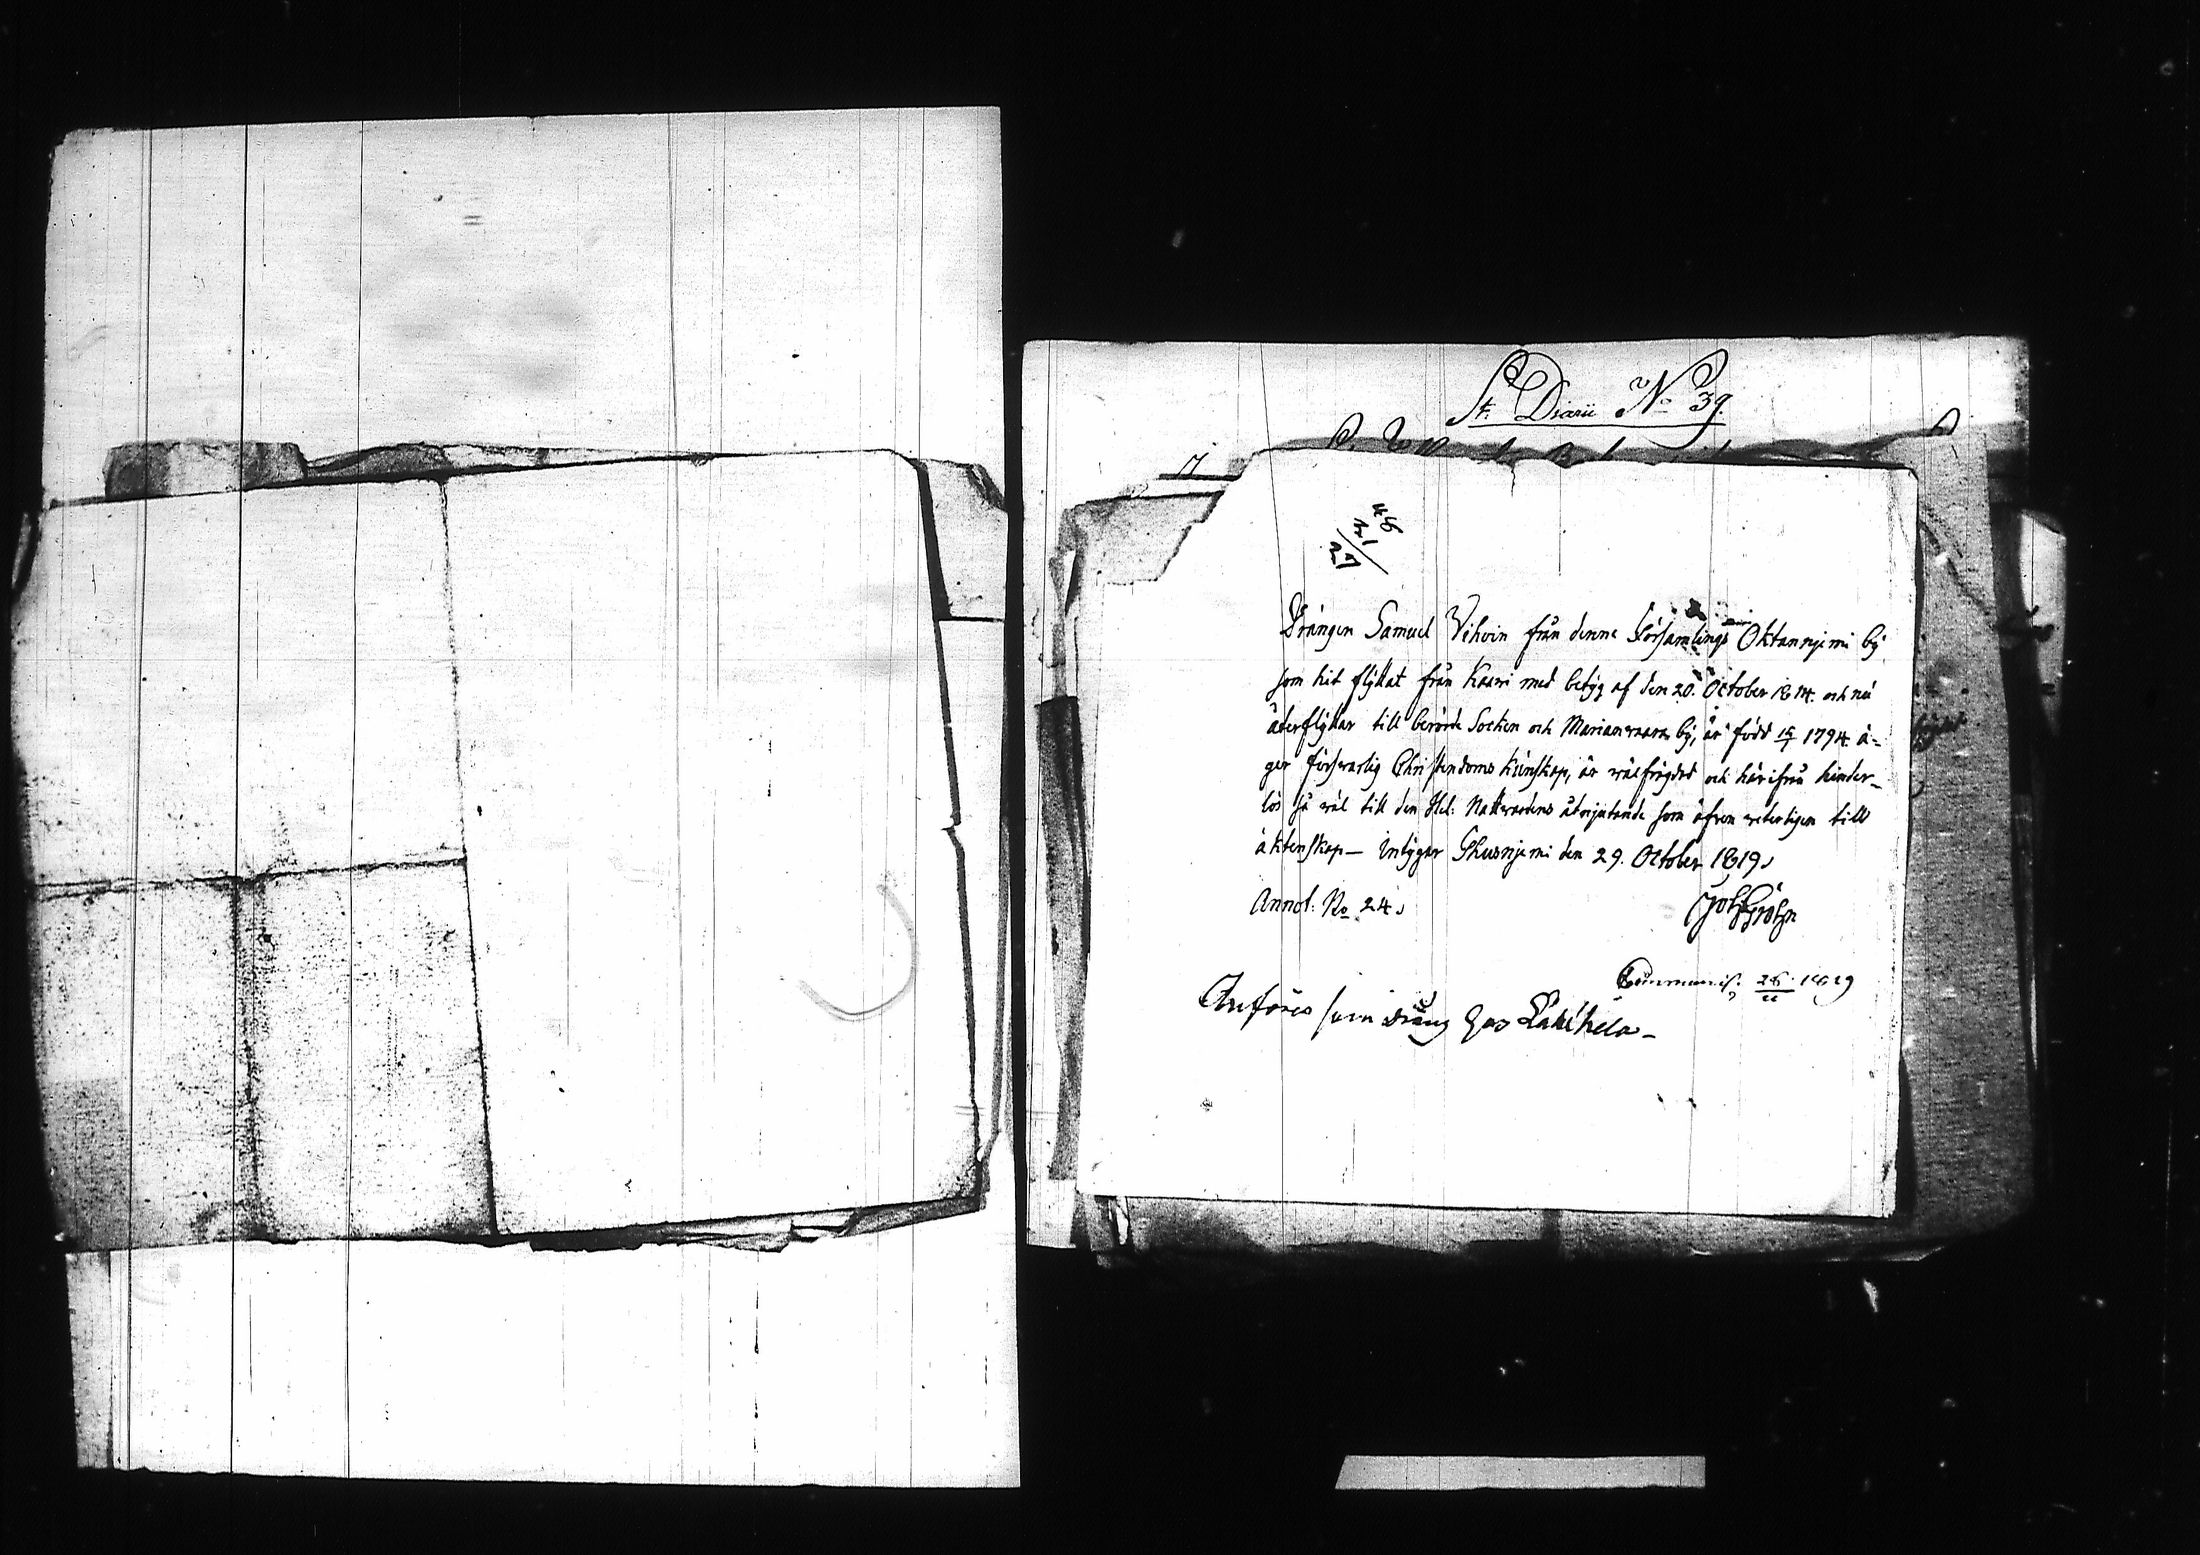 St. Diarii No 39.
Drängen Samuel Vihvin från denne Församlings Oktannjemi by
som hit flyttat från Kaavi med betyg af den 20. October 1814. och nu
återflyttar till berörde Socken och Marianvaara by, är född 15/9 1794. ä-
ger försvarlig Christendoms kunskap, är välfrägdad och härifrån hinder-
lös så väl till den Hel. Nattvardens åtnjutande som äfven
äktenskap – intygar den 29. October 1819.
Annot: No 24.
Communic: 26/11 1819
Anföres som dräng hos